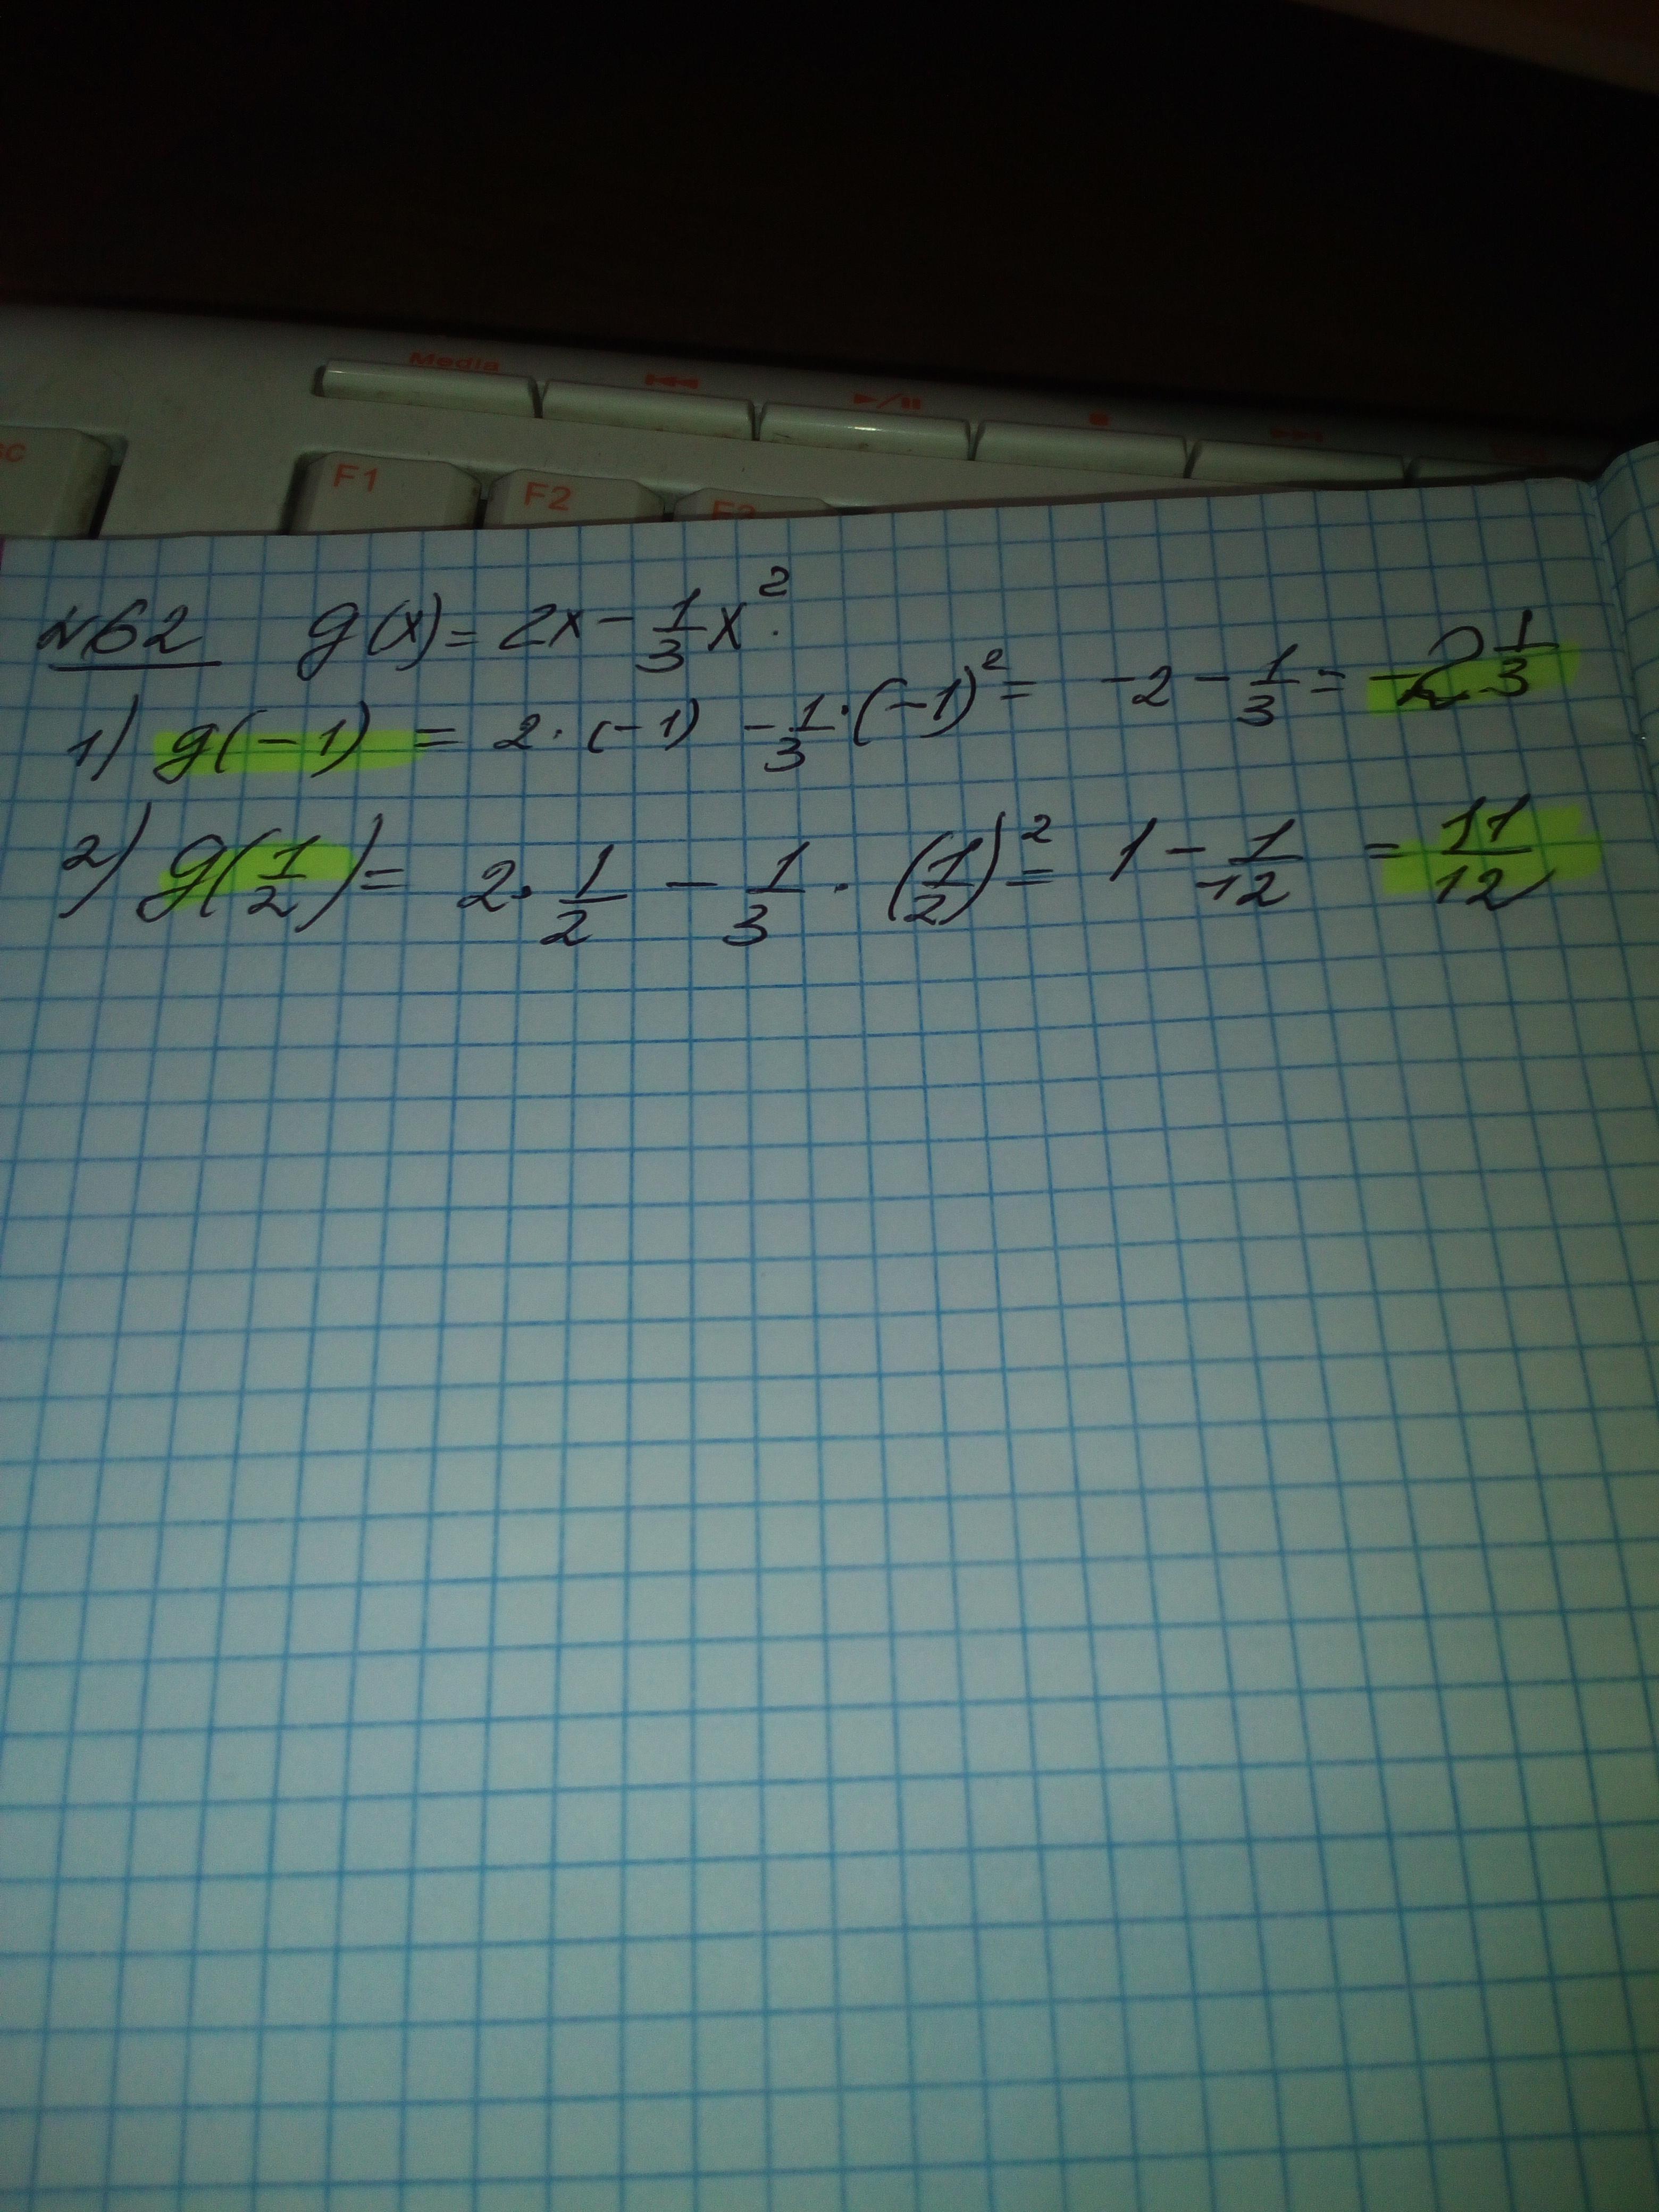 Media
F1 F2 F3
№62 g(x) = 2x - 1/3 x².
1) g(-1) = 2·(-1) - 1/3·(-1)² = -2 - 1/3 = -2 1/3
2) g(1/2) = 2·1/2 - 1/3·(1/2)² = 1 - 1/12 = 11/12